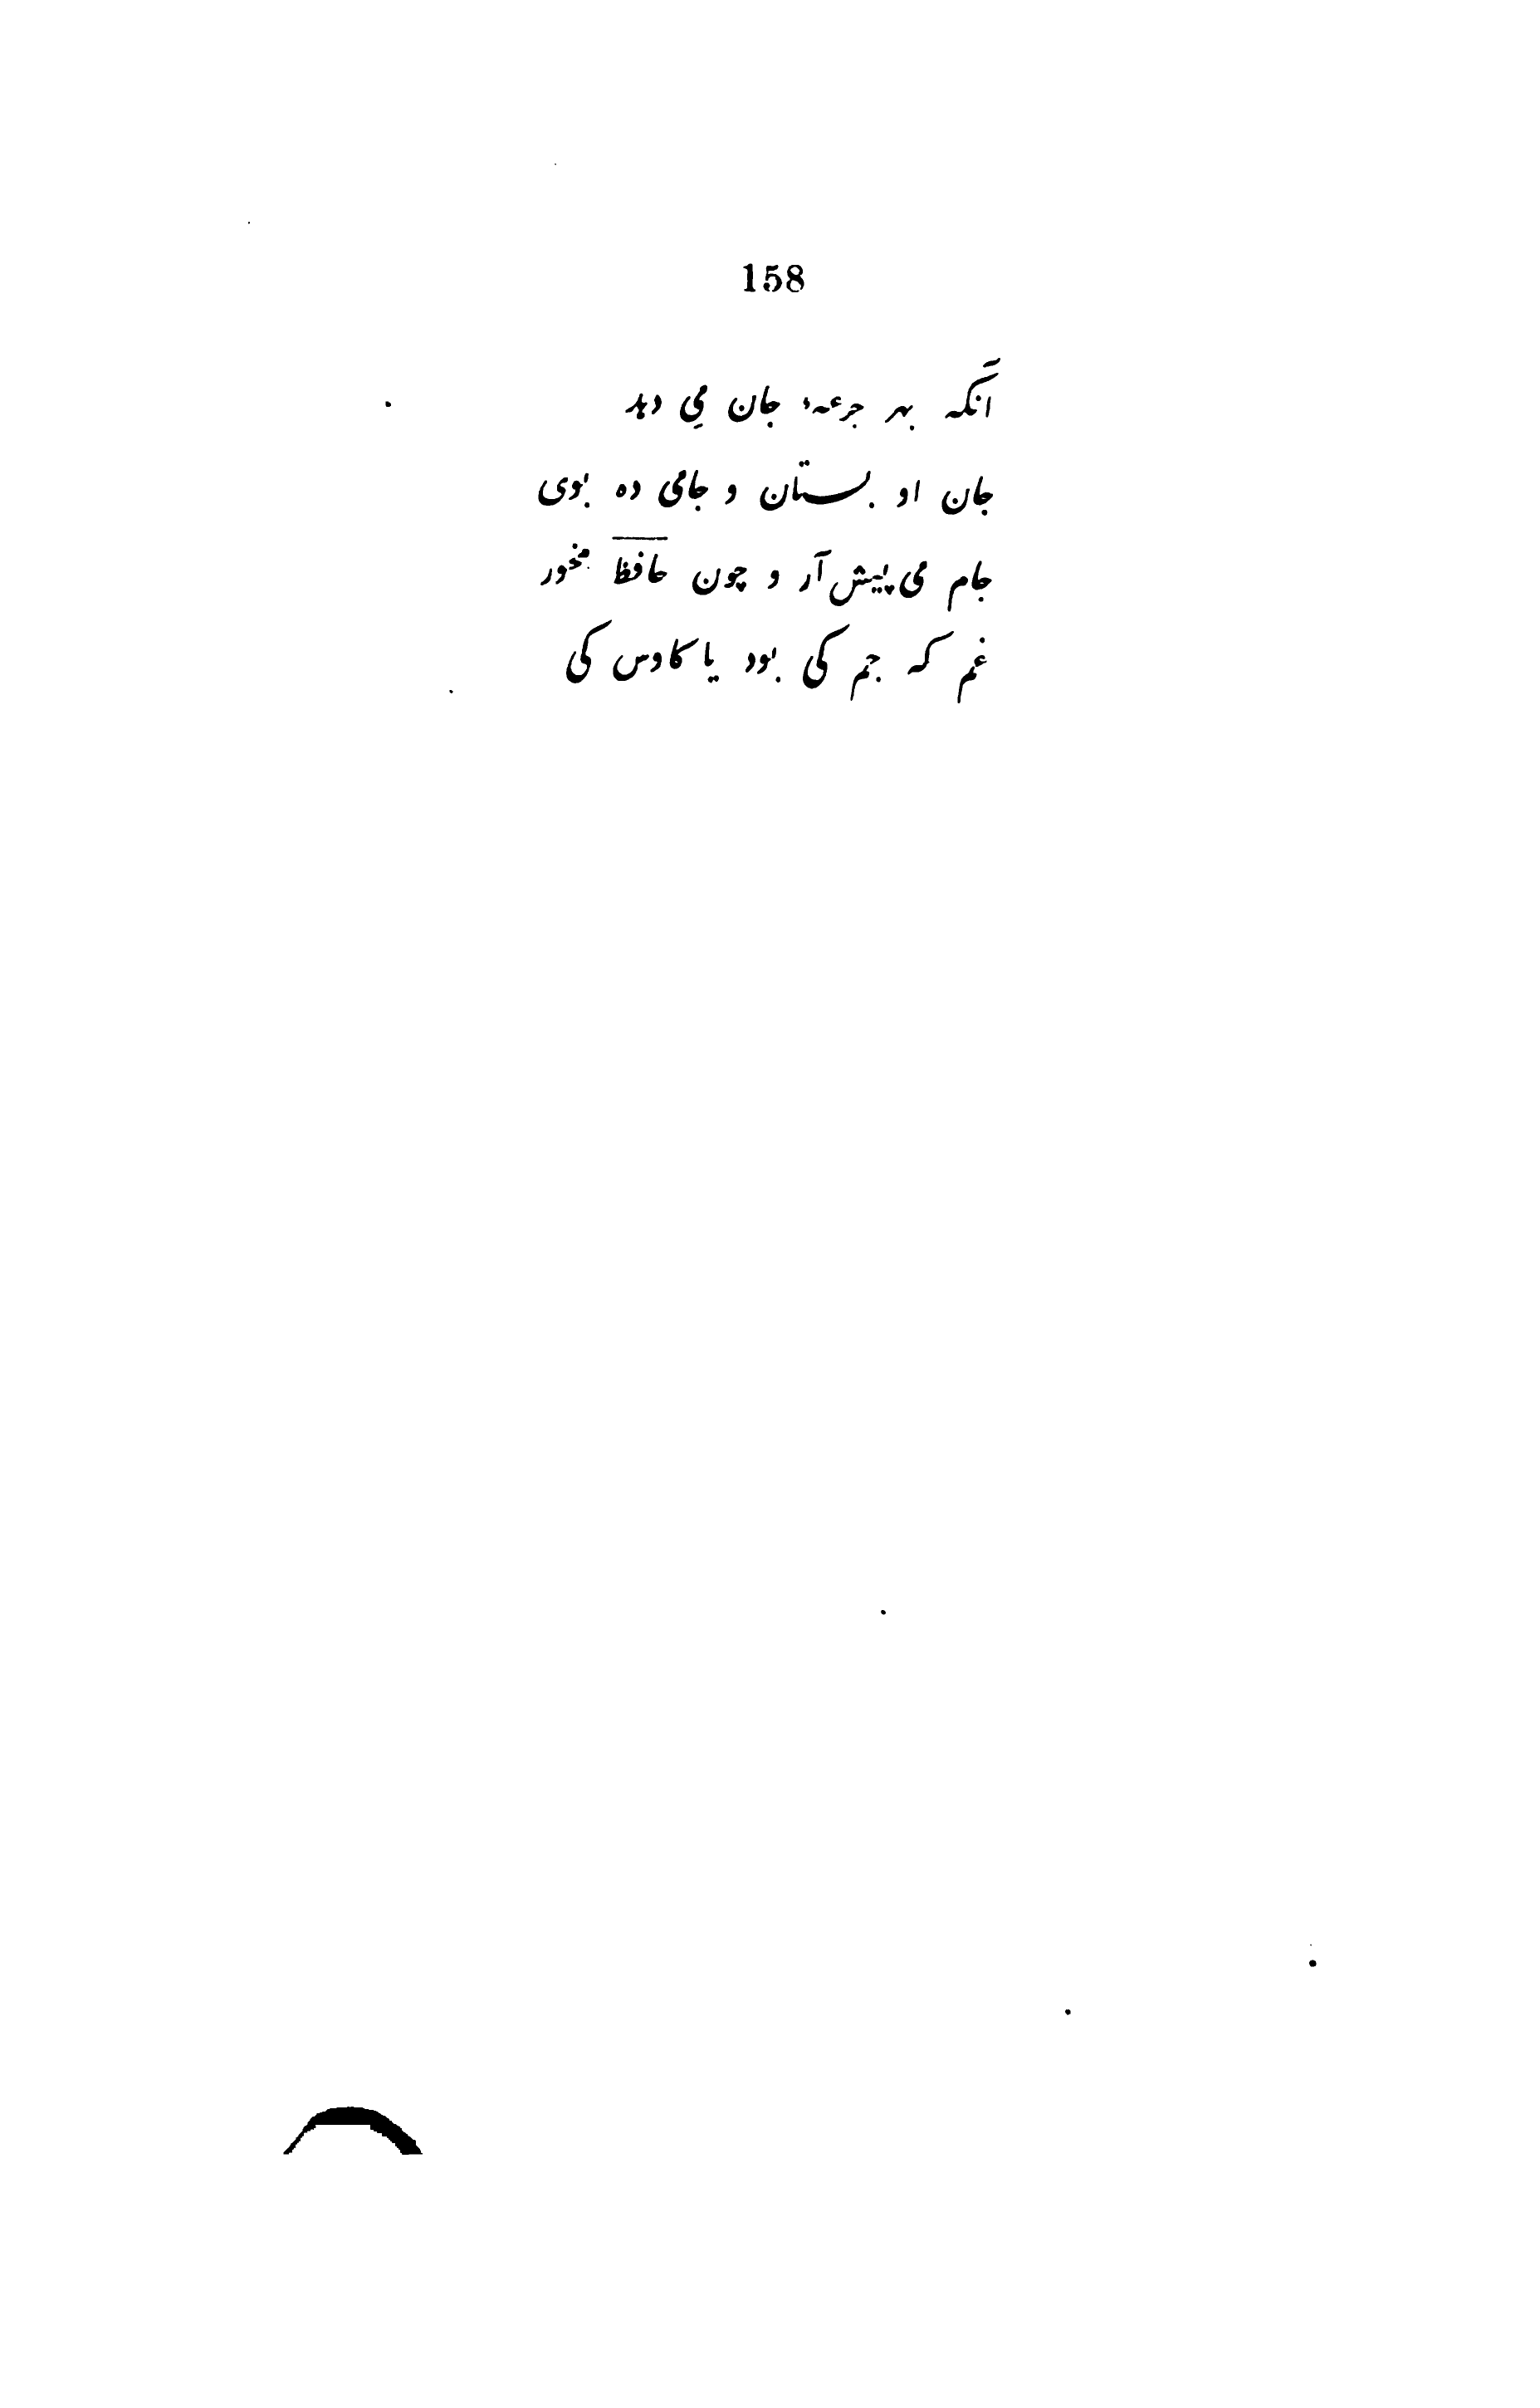 158
آنکه بهر جرعهٔ جان می دهد
جان او بستان و جامی ده بوی
جام می پیش آر و چون حافظ مخور
غم که جم کی بود یا کاوس کی